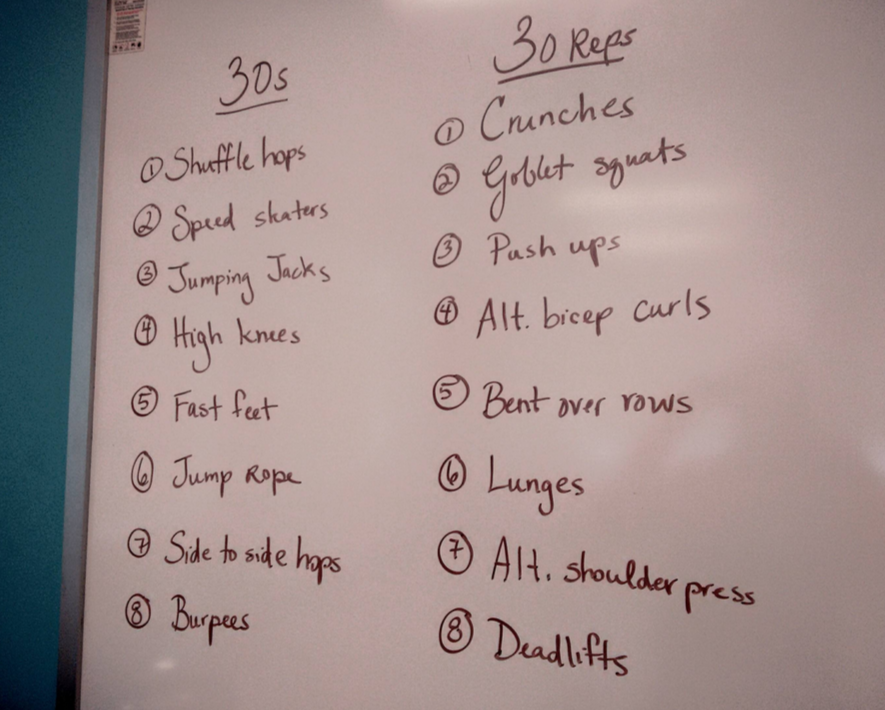 30s
① Shuffle hops
② Speed skaters
③ Jumping Jacks
④ High knees
⑤ Fast feet
⑥ Jump Rope
⑦ Side to side hops
⑧ Burpees
30 Reps
① Crunches
② Goblet squats
③ Push ups
④ Alt. bicep curls
⑤ Bent over rows
⑥ Lunges
⑦ Alt. shoulder press
⑧ Deadlifts